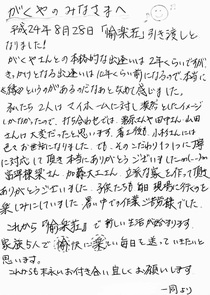 がくやのみなさまへ
平成24年8月28日「愉楽荘」引き渡しと
なりました!
がくやさんとの本格的な出逢いは2年くらいですが、
きっかけとなる出逢いは 年くらい前になるので、本当に
縁というのがあるのだなあと なめて感じました。
私たち2人はマイホームに対し 漠然としたイメージ
しかなかったので、打ち合わせでは、 さんや田さん、山田
さんは大変だったと思います。着工後も、小村さんには
色々お世話になりました。でも、そのこだわり1つ1つに丁寧
に対応して頂き本当にありがとうございましたm(_ _)m
棟梁さん、加藤大工さん、立派な家を作って頂き
ありがとうございました。3 たちも毎日現場に行くのを
楽しみにしていました。暑い中での作業ご苦労様でした。
これから『愉楽荘』で新しい生活が始まります。
家族5人で愉快に楽しい毎日を送っていきたいと
思います。
これからも末永いお付き合い宜しくお願いします
一同より